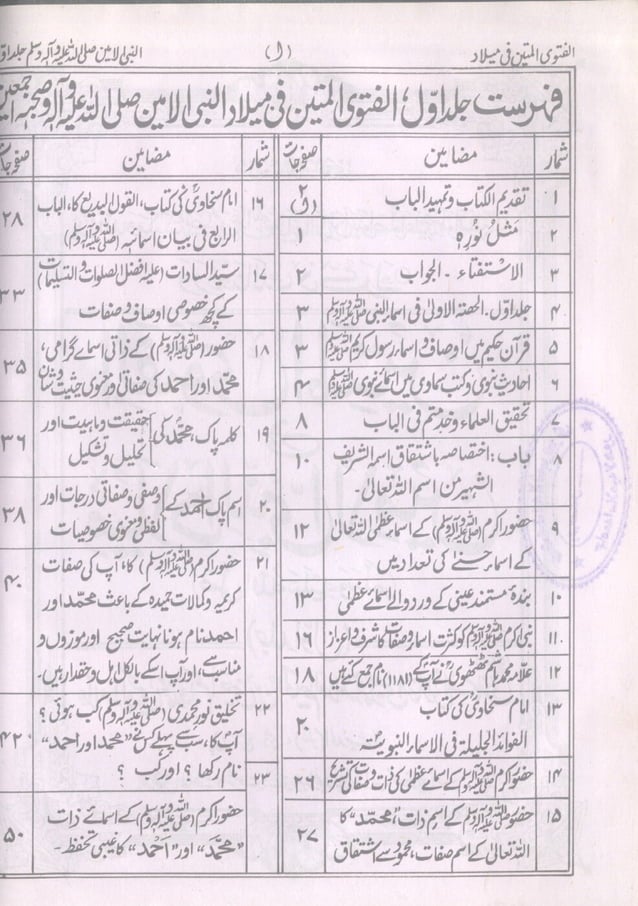 الفتوی المتین فی میلاد
(ل)
النبی الامین صلی اللہ علیہ وآلہ وسلم جلد اوّ
فہرست جلد اوّل؛ الفتوی المتین فی میلاد النبی الامین صلی اللہ علیہ وآلہ وصحبہ
شمار
مضامین
صفحہ جات
۱ تقدیم الکتاب وتمہید الباب ۲ (ل)
۲ مَثَلُ نُورِہٖ ۱
۳ الاستفتاء - الجواب ۲
۴ جلد اوّل - الحصتہ الاولیٰ فی اسماء النبی ﷺ ۳
۵ قرآن حکیم میں اوصاف و اسماء رسول کریم ﷺ ۳
۶ احادیث نبوی و کتب سماوی میں اسمائے نبوی ﷺ ۴
۷ تحقیق العلماء وخدمتہم فی الباب ۸
۸ باب: اختصاصہ باشتقاق اسمہ الشریف ۱۰
الشہیر من اسم اللہ تعالیٰ -
۹ حضور اکرم (ﷺ) کے اسماء عظمیٰ اللہ تعالیٰ ۱۲
کے اسماء حسنےٰ کی تعداد میں
۱۰ بندۂ مستمند عینی کے ورد والے اسمائے عظمیٰ ۱۳
۱۱ نبی اکرم ﷺ کو کثرت اسماء و صفات کا شرف و اعزاز ۱۶
۱۲ علامہ محمد ہاشم ٹھٹھوی نے آپ کے (۱۱۸۱) نام جمع کئے ہیں ۱۸
۱۳ امام سخاویؒ کی کتاب ۲۰
الفوائد الجلیلة فی الاسماء النبویة
۱۴ حضور اکرم ﷺ کے اسمائے عظمیٰ کی ذات و صفات کی تشریح ۲۶
۱۵ حضور ﷺ کے اسم ذات، "محمد" کا ۲۷
اللہ تعالیٰ کے اسم صفات، محمود سے اشتقاق
شمار
مضامین
صفحہ جات
۱۶ امام سخاویؒ کی کتاب، القول البدیع کا، الباب ۲۸
الرابع فی بیان اسمائہ (ﷺ)
۱۷ سیّد السادات (علیہ افضل الصلوات و التسلیمات) ۳۳
کے کچھ خصوصی اوصاف و صفات
۱۸ حضور (ﷺ) کے ذاتی اسمائے گرامی، ۳۵
محمد اور احمد کی صفاتی اور معنوی حیثیت و شان
۱۹ کلمہ پاک، محمد کی حقیقت و ماہیت اور ۳۶
تحلیل و تشکیل
۲۰ اسم پاک احمد کے وصفی و صفاتی درجات اور ۳۸
لفظی و معنوی خصوصیات
۲۱ حضور اکرم (ﷺ) کا، آپ کی صفات ۴۰
کریمہ و کمالات حمیدہ کے باعث محمد اور
احمد نام ہونا نہایت صحیح اور موزوں و
مناسب ہے، اور آپ اسکے بالکل اہل و حقدار ہیں۔
۲۲ تخلیق نور محمدی (ﷺ) کب ہوئی؟ ۴۲
آپ کا، سب سے پہلے کس نے "محمد اور احمد"
نام رکھا؟ اور کب؟
۲۳ حضور اکرم (ﷺ) کے اسمائے ذات ۵۰
"محمد" اور "احمد" کا غیبی تحفظ -